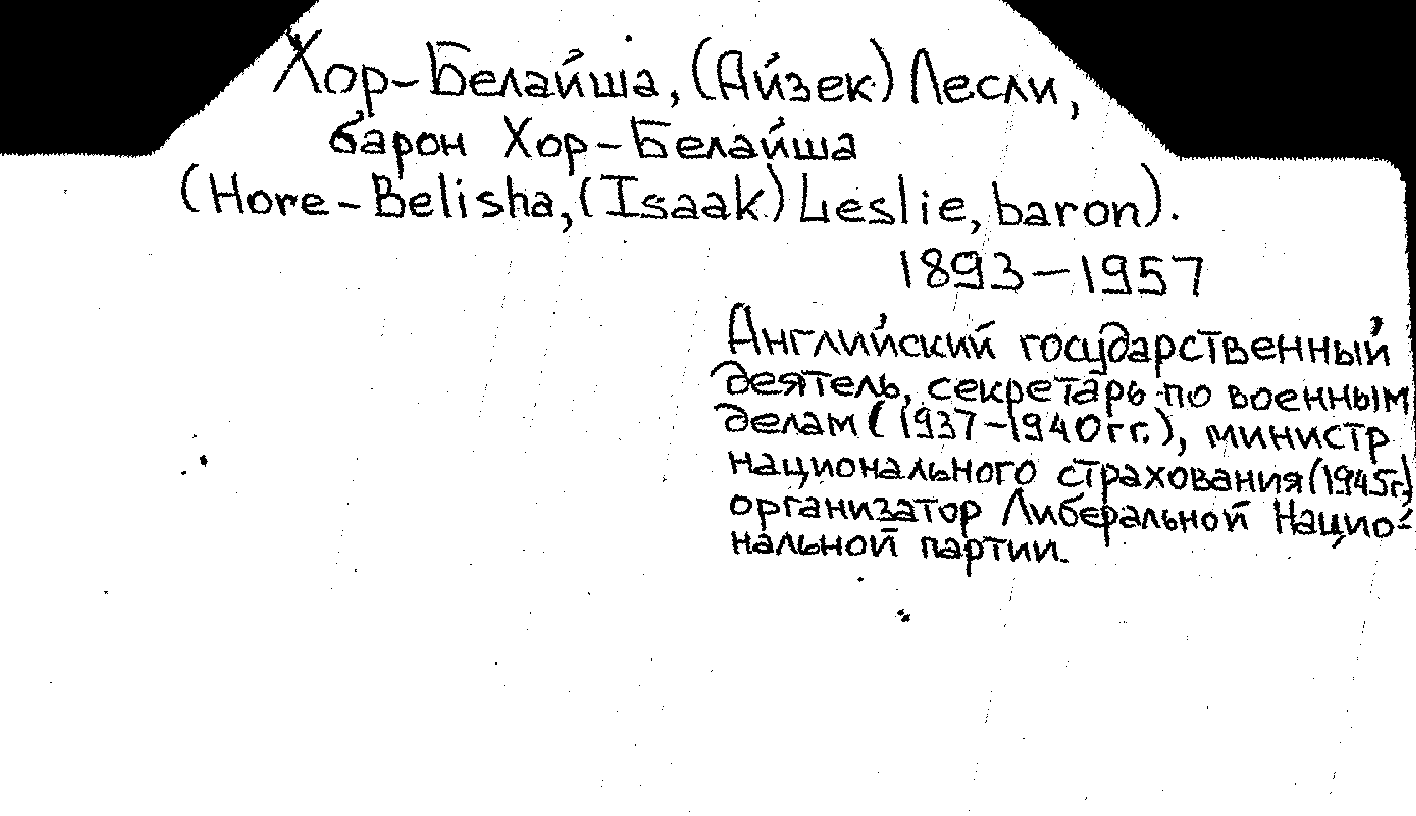 Хор-Белайша, (Айзек) Лесли,
барон Хор-Белайша
(Hore-Belisha, (Isaak) Leslie, baron).
1893-1957
Английский государственный
деятель, секретарь по военным
делам (1937-1940гг.), министр
национального страхования (1945г.)
организатор Либеральной Нацио-
нальной партии.